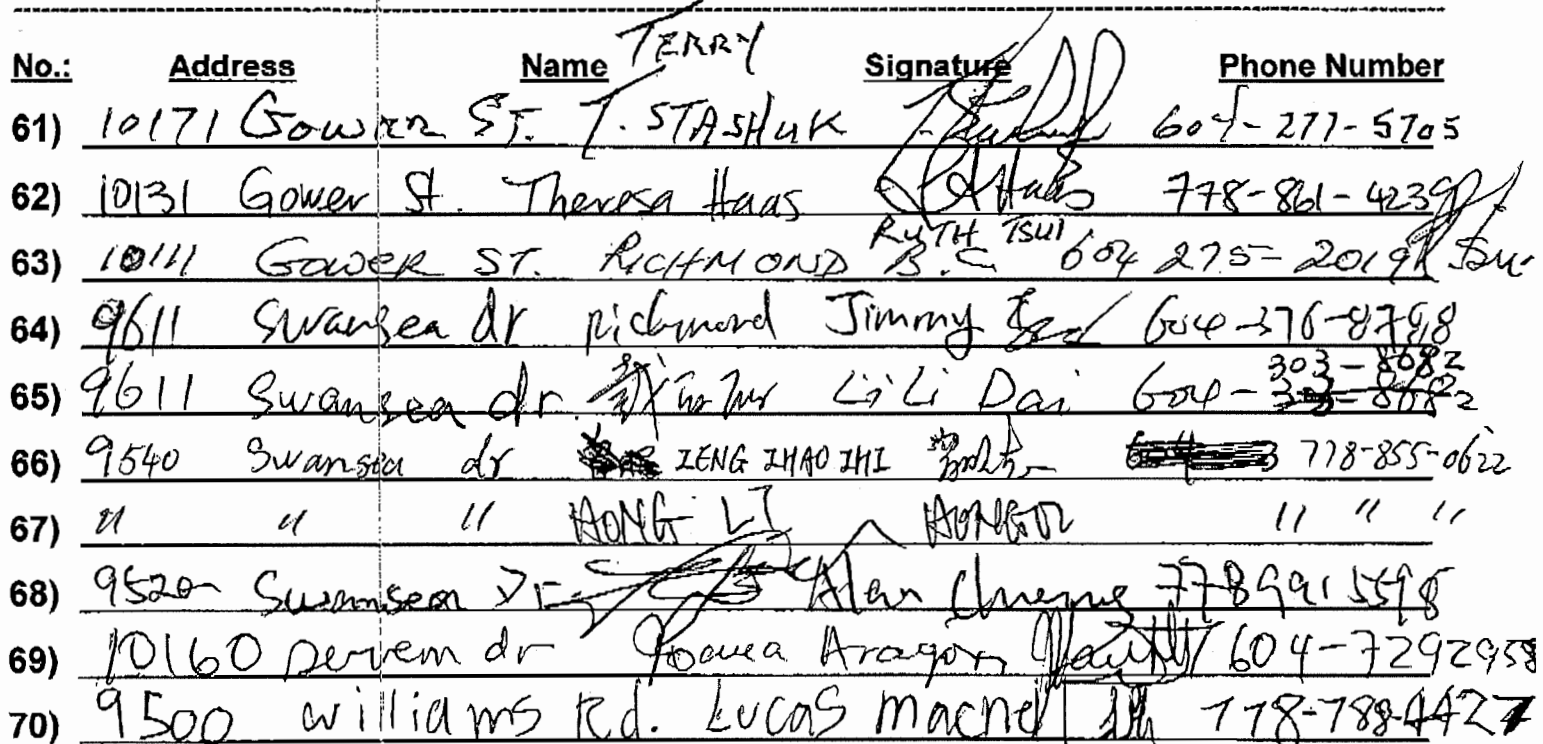 TERRY
No.: Address Name Signature Phone Number
61) 10171 Gower ST. T. STASHUK 604-277-5705
62) 10131 Gower St. Theresa Haas 778-861-4239
RUTH TSUI
63) 10111 GOWER ST. RICHMOND B.C 604 275-2019
64) 9611 Swansea dr richmond Jimmy 604-376-8798
303-8682
65) 9611 Swansea dr. LiLi Dai 604-
66) 9540 Swansea dr ZENG ZHAO ZHI 778-855-0622
67) " " " HONG LI " " "
68) 9520 Swansea Dr Alan 7789915598
69) 10160 dr Aragon 604-7292958
70) 9500 williams Rd. Lucas 778-788-4427